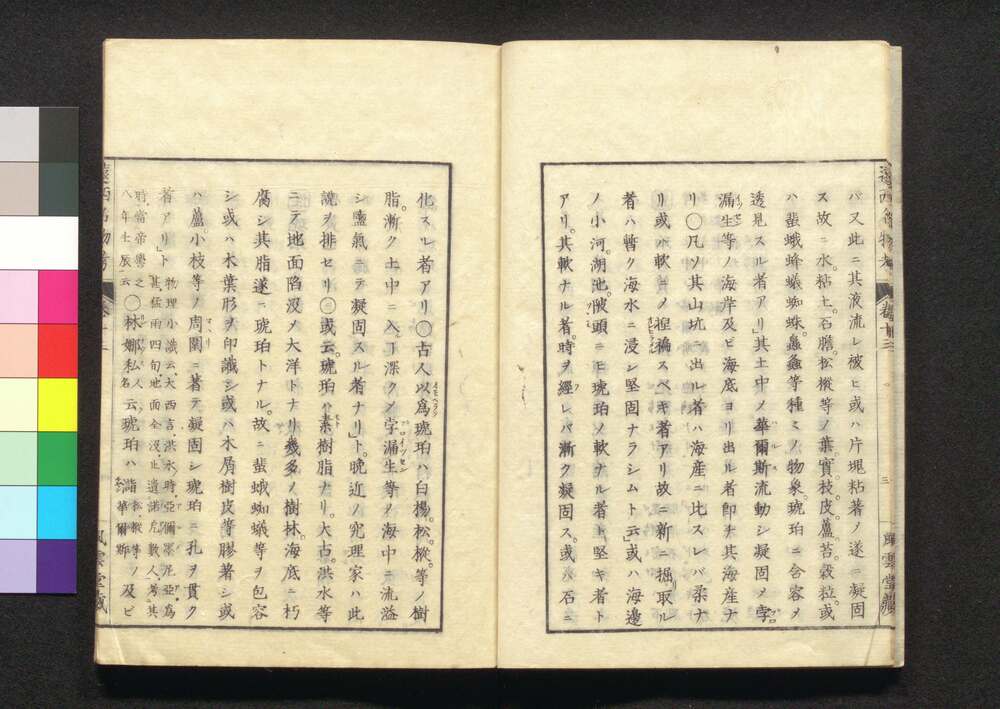 バ又此ニ其液流レ被ヒ或ハ片塊粘著ノ遂ニ凝固
ス故ニ水。粘土。石膽。松樅等ノ葉。實。枝。皮。蘆。苔。穀粒。或
ハ蜚蛾蜂蟻蜘蛛。螽蟁等種々ノ物象。琥珀ニ含容メ
透見スル者アリ」其土中ノ華爾斯流動シ凝固メ孛
漏生等ノ海岸及ビ海底ヨリ出ル者卽チ其海産ナ
リ〇凡ソ其山坑ニ出ル者ハ海産ニ比スレバ柔ナ
リ或ハ軟ニメ捏搦スベキ者アリ故ニ新ニ掘リ取ル
者ハ暫ク海水ニ浸シ堅固ナラシムト云」或ハ海邊
ノ小河。湖池。陂頭ニモ琥珀ノ軟ナル者ト堅キ者ト
アリ。其軟ナル者。時ヲ經レバ漸ク凝固ス。或ハ石ニ
遠西名物考 卷十三
三
風雲堂藏
化スル者アリ〇古人以爲琥珀ハ白楊。松。樅。等ノ樹
脂。漸ク土中ニ入テ深クメ孛漏生等ノ海中ニ流溢
シ鹽氣ニテ凝固スル者ナリ」ト。晩近ノ究理家ハ此
說ヲ排セリ〇或云。琥珀ハ素樹脂ナリ。大古。洪水等
ニテ地面陷沒メ大洋トナリ幾多ノ樹林。海底ニ朽
腐シ其脂遂ニ琥珀トナル。故ニ蜚蛾蜘蟻等ヲ包容
シ或ハ木葉形ヲ印識シ或ハ木屑樹皮等膠著シ或
ハ蘆小枝等ノ周圍ニ著テ凝固シ琥珀ニ孔ヲ貫ク
者アリ」ト 物理小識云大西言。洪水時。亞爾墨尼亞。爲
甚。猛雨四旬地面全沒。止遺諾厄數人。考其
時。當帝嚳之
八年土辰云 〇林娜私人名云琥珀ハ諸松樅等ノ及ビ華爾斯
遠西名物考 卷十三
風雲堂藏